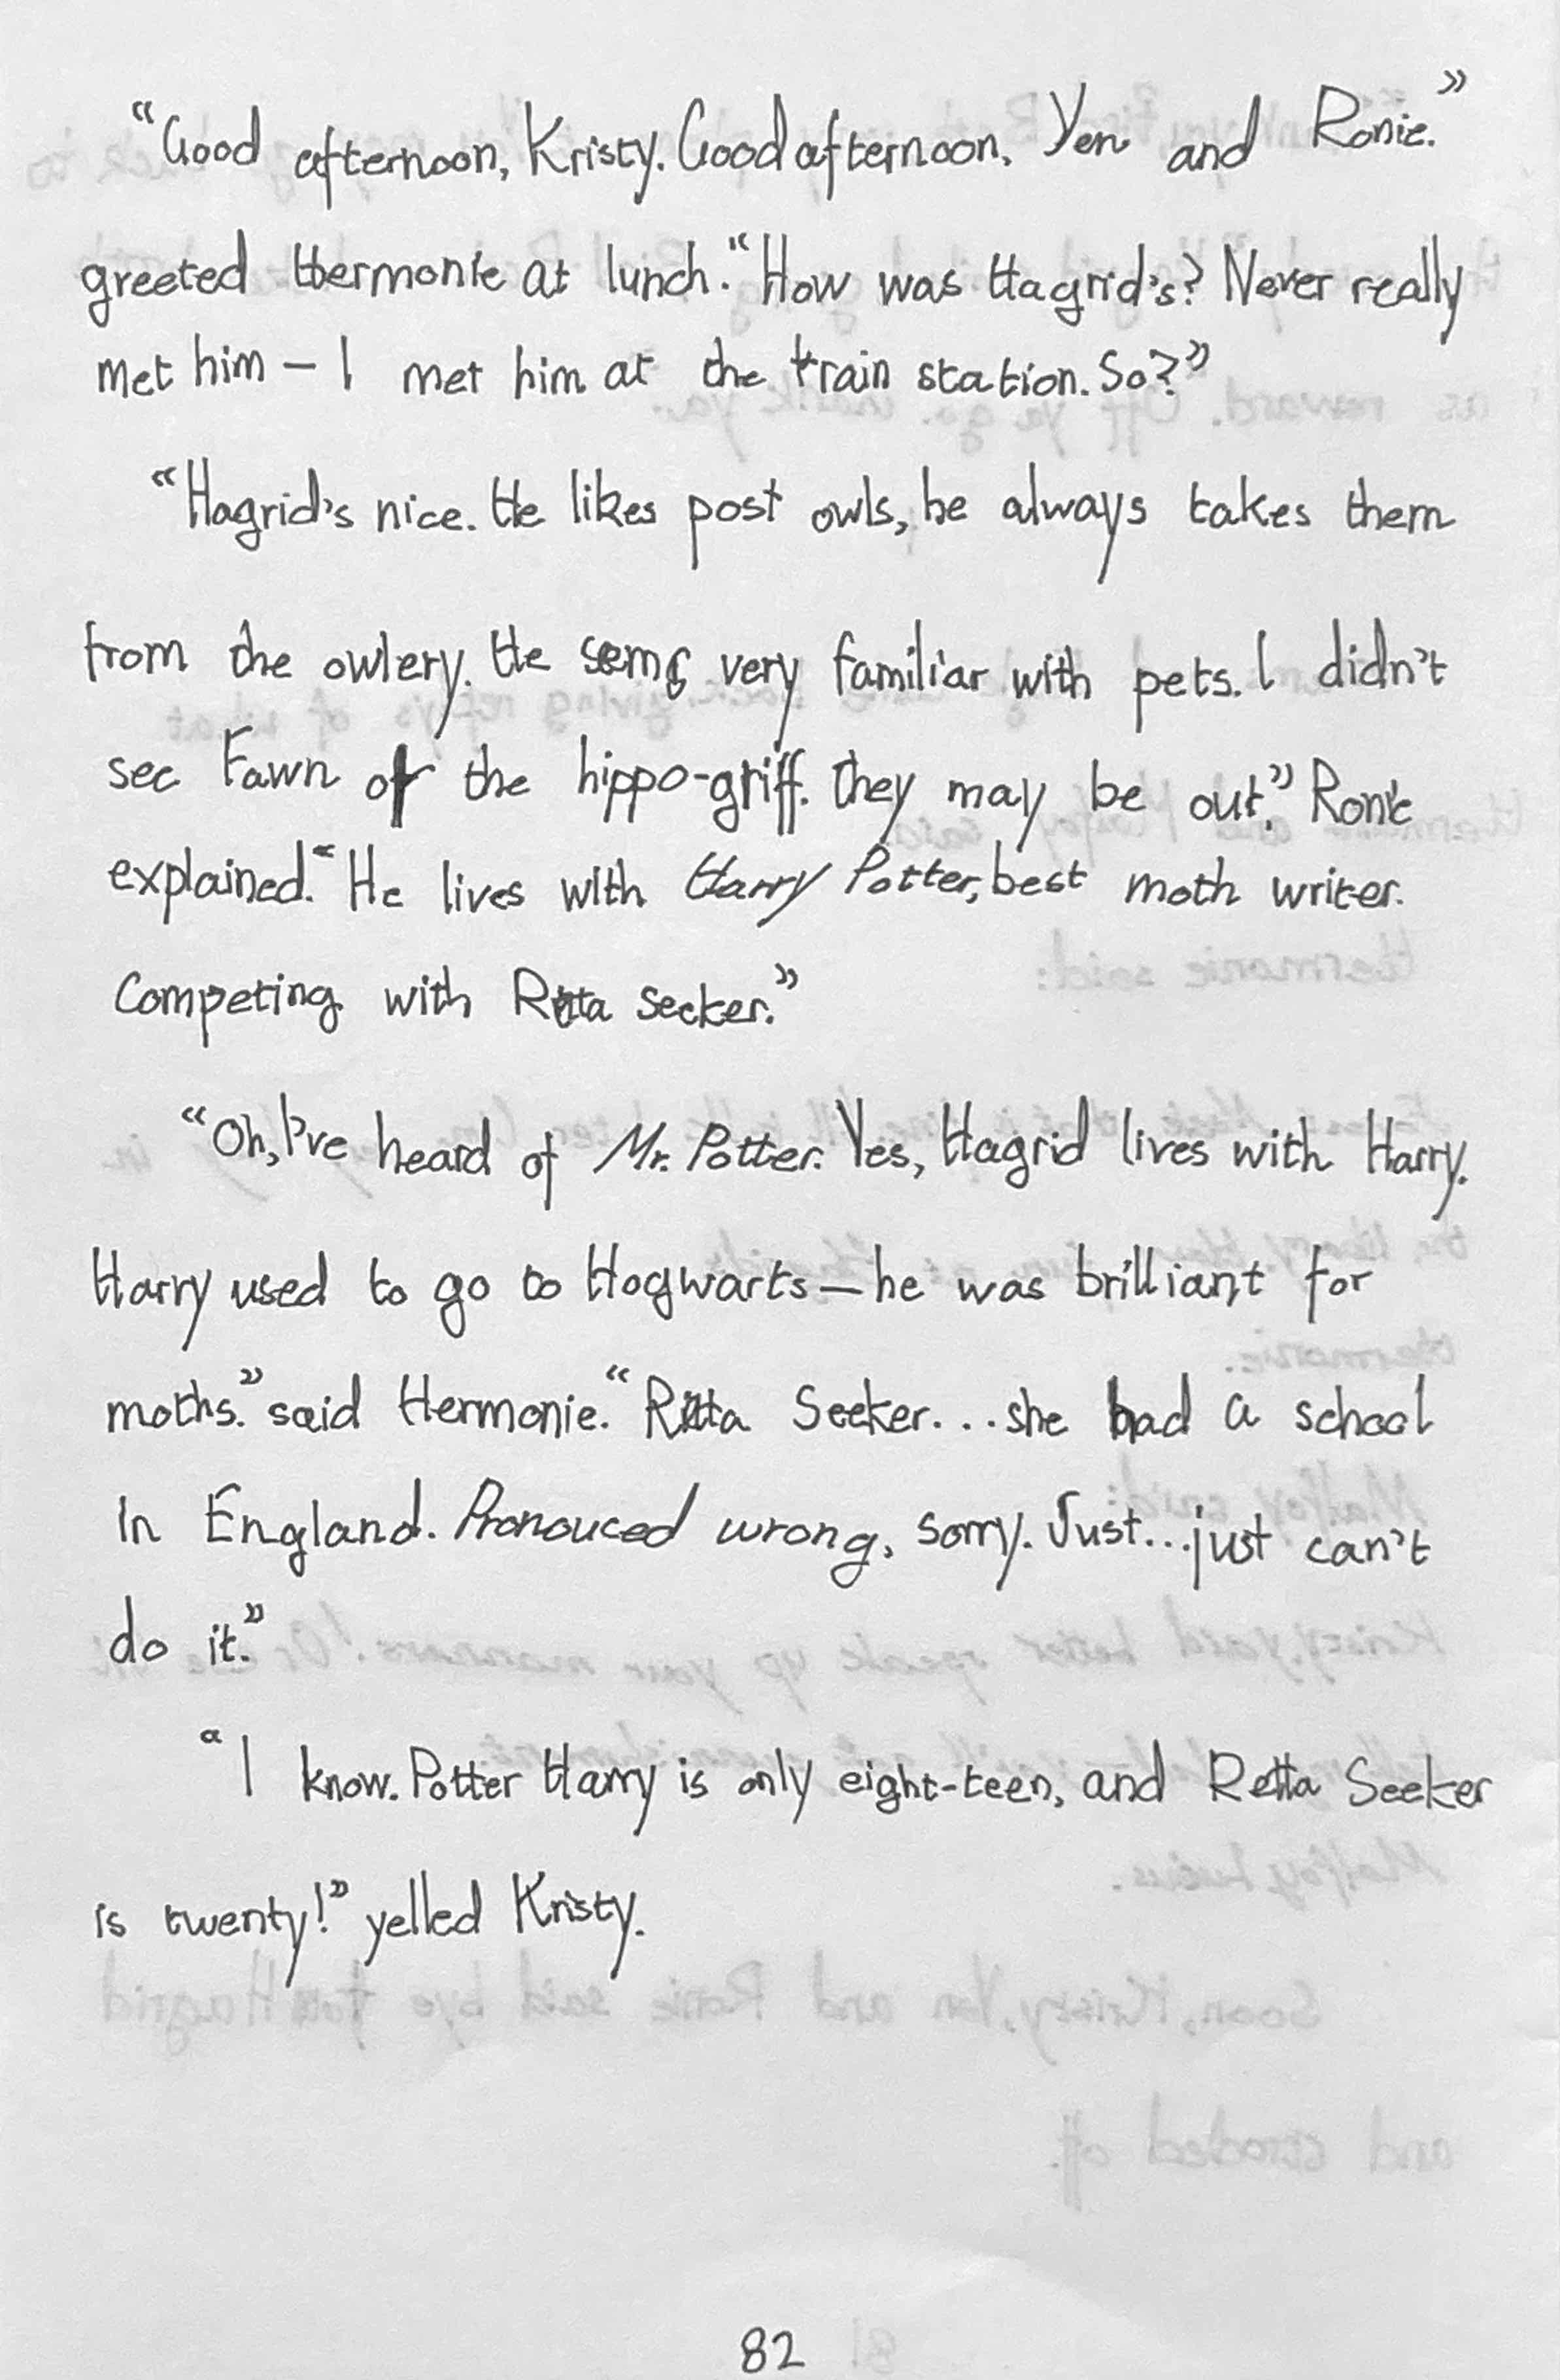 “Good afternoon, Kristy. Good afternoon, Yen and Ronie.”
greeted Hermonie at lunch. “How was Hagrid's? Never really
met him – I met him at the train station. So?”
“Hagrid's nice. He likes post owls, he always takes them
from the owlery. He sems very familiar with pets. I didn't
see Fawn or the hippo-griff. They may be out.” Ronie
explained. “He lives with Harry Potter, best moth writer.
Competing with Retta Seeker.”
“Oh, I've heard of Mr. Potter. Yes, Hagrid lives with Harry.
Harry used to go to Hogwarts – he was brilliant for
moths.” said Hermonie. “Retta Seeker... she had a school
in England. Pronouced wrong, sorry. Just... just can't
do it.”
“I know. Potter Harry is only eight-teen, and Retta Seeker
is twenty!” yelled Kristy.
82